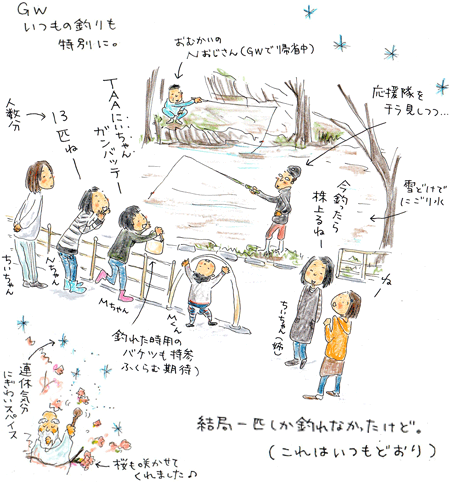 GW
いつもの釣りも
特別に。
おむかいの
Nおじさん(GWで帰省中)
応援隊を
チラ見しつつ…
TAAにいちゃん
ガンバッテー
13
匹ねー
人数分
今釣ったら
株上るねー
雪どけで
にごり水
ね
ちいちゃん
Nちゃん
Mちゃん
Mくん
ちいちゃん(姉)
釣れた時用の
バケツも持参
ふくらむ期待)
連休気分
にぎわいスパイス
桜も咲かせて
くれました♪
結局一匹しか釣れなかったけど。
(これはいつもどおり)